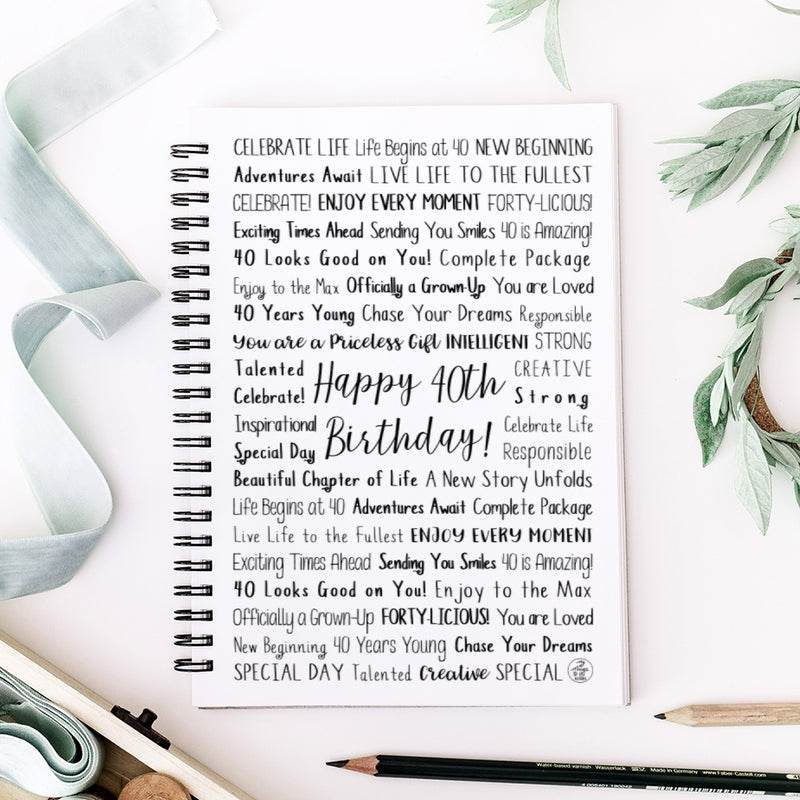 CELEBRATE LIFE Life Begins at 40 NEW BEGINNING
Adventures Await LIVE LIFE TO THE FULLEST
CELEBRATE! ENJOY EVERY MOMENT FORTY-LICIOUS!
Exciting Times Ahead Sending You Smiles 40 is Amazing!
40 Looks Good on You! Complete Package
Enjoy to the Max Officially a Grown-Up You are Loved
40 Years Young Chase Your Dreams Responsible
You are a Priceless Gift INTELLIGENT STRONG
Talented CREATIVE
Celebrate! Happy 40th Strong
Inspirational Celebrate Life
Special Day Birthday! Responsible
Beautiful Chapter of Life A New Story Unfolds
Life Begins at 40 Adventures Await Complete Package
Live Life to the Fullest ENJOY EVERY MOMENT
Exciting Times Ahead Sending You Smiles 40 is Amazing!
40 Looks Good on You! Enjoy to the Max
Officially a Grown-Up FORTY-LICIOUS! You are Loved
New Beginning 40 Years Young Chase Your Dreams
SPECIAL DAY Talented Creative SPECIAL
Water-based varnish Wasserlack Made in Germany www.Faber-Castell.com